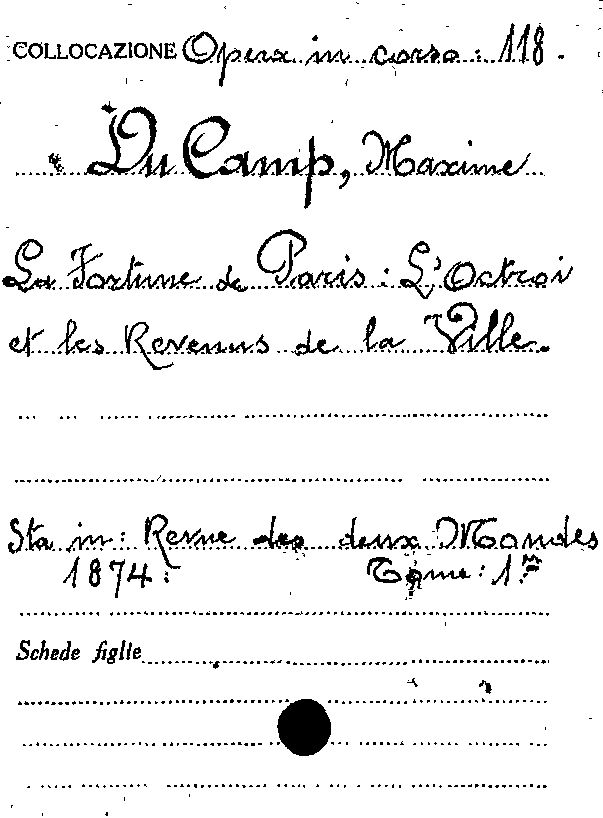 COLLOCAZIONE Opera in corso: 118.
Du Camp, Maxime
La Fortune de Paris: L'Octroi
et les Revenus de la Ville.
Sta in: Revue des deux Mondes
1874: Tome: 1.m
Schede figlie